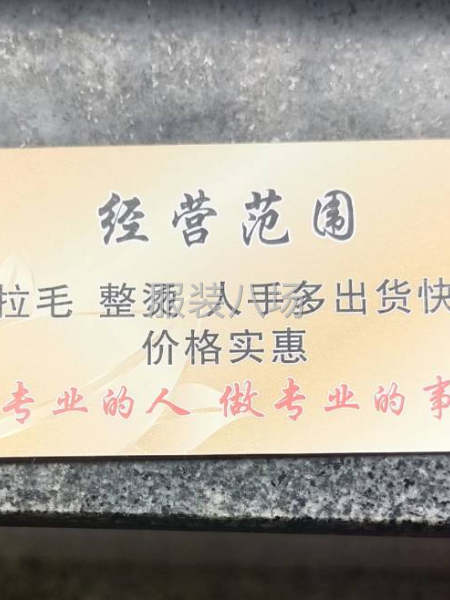 经营范围
拉毛 整烫 人手多出货快
价格实惠
专业的人 做专业的事
服装八场